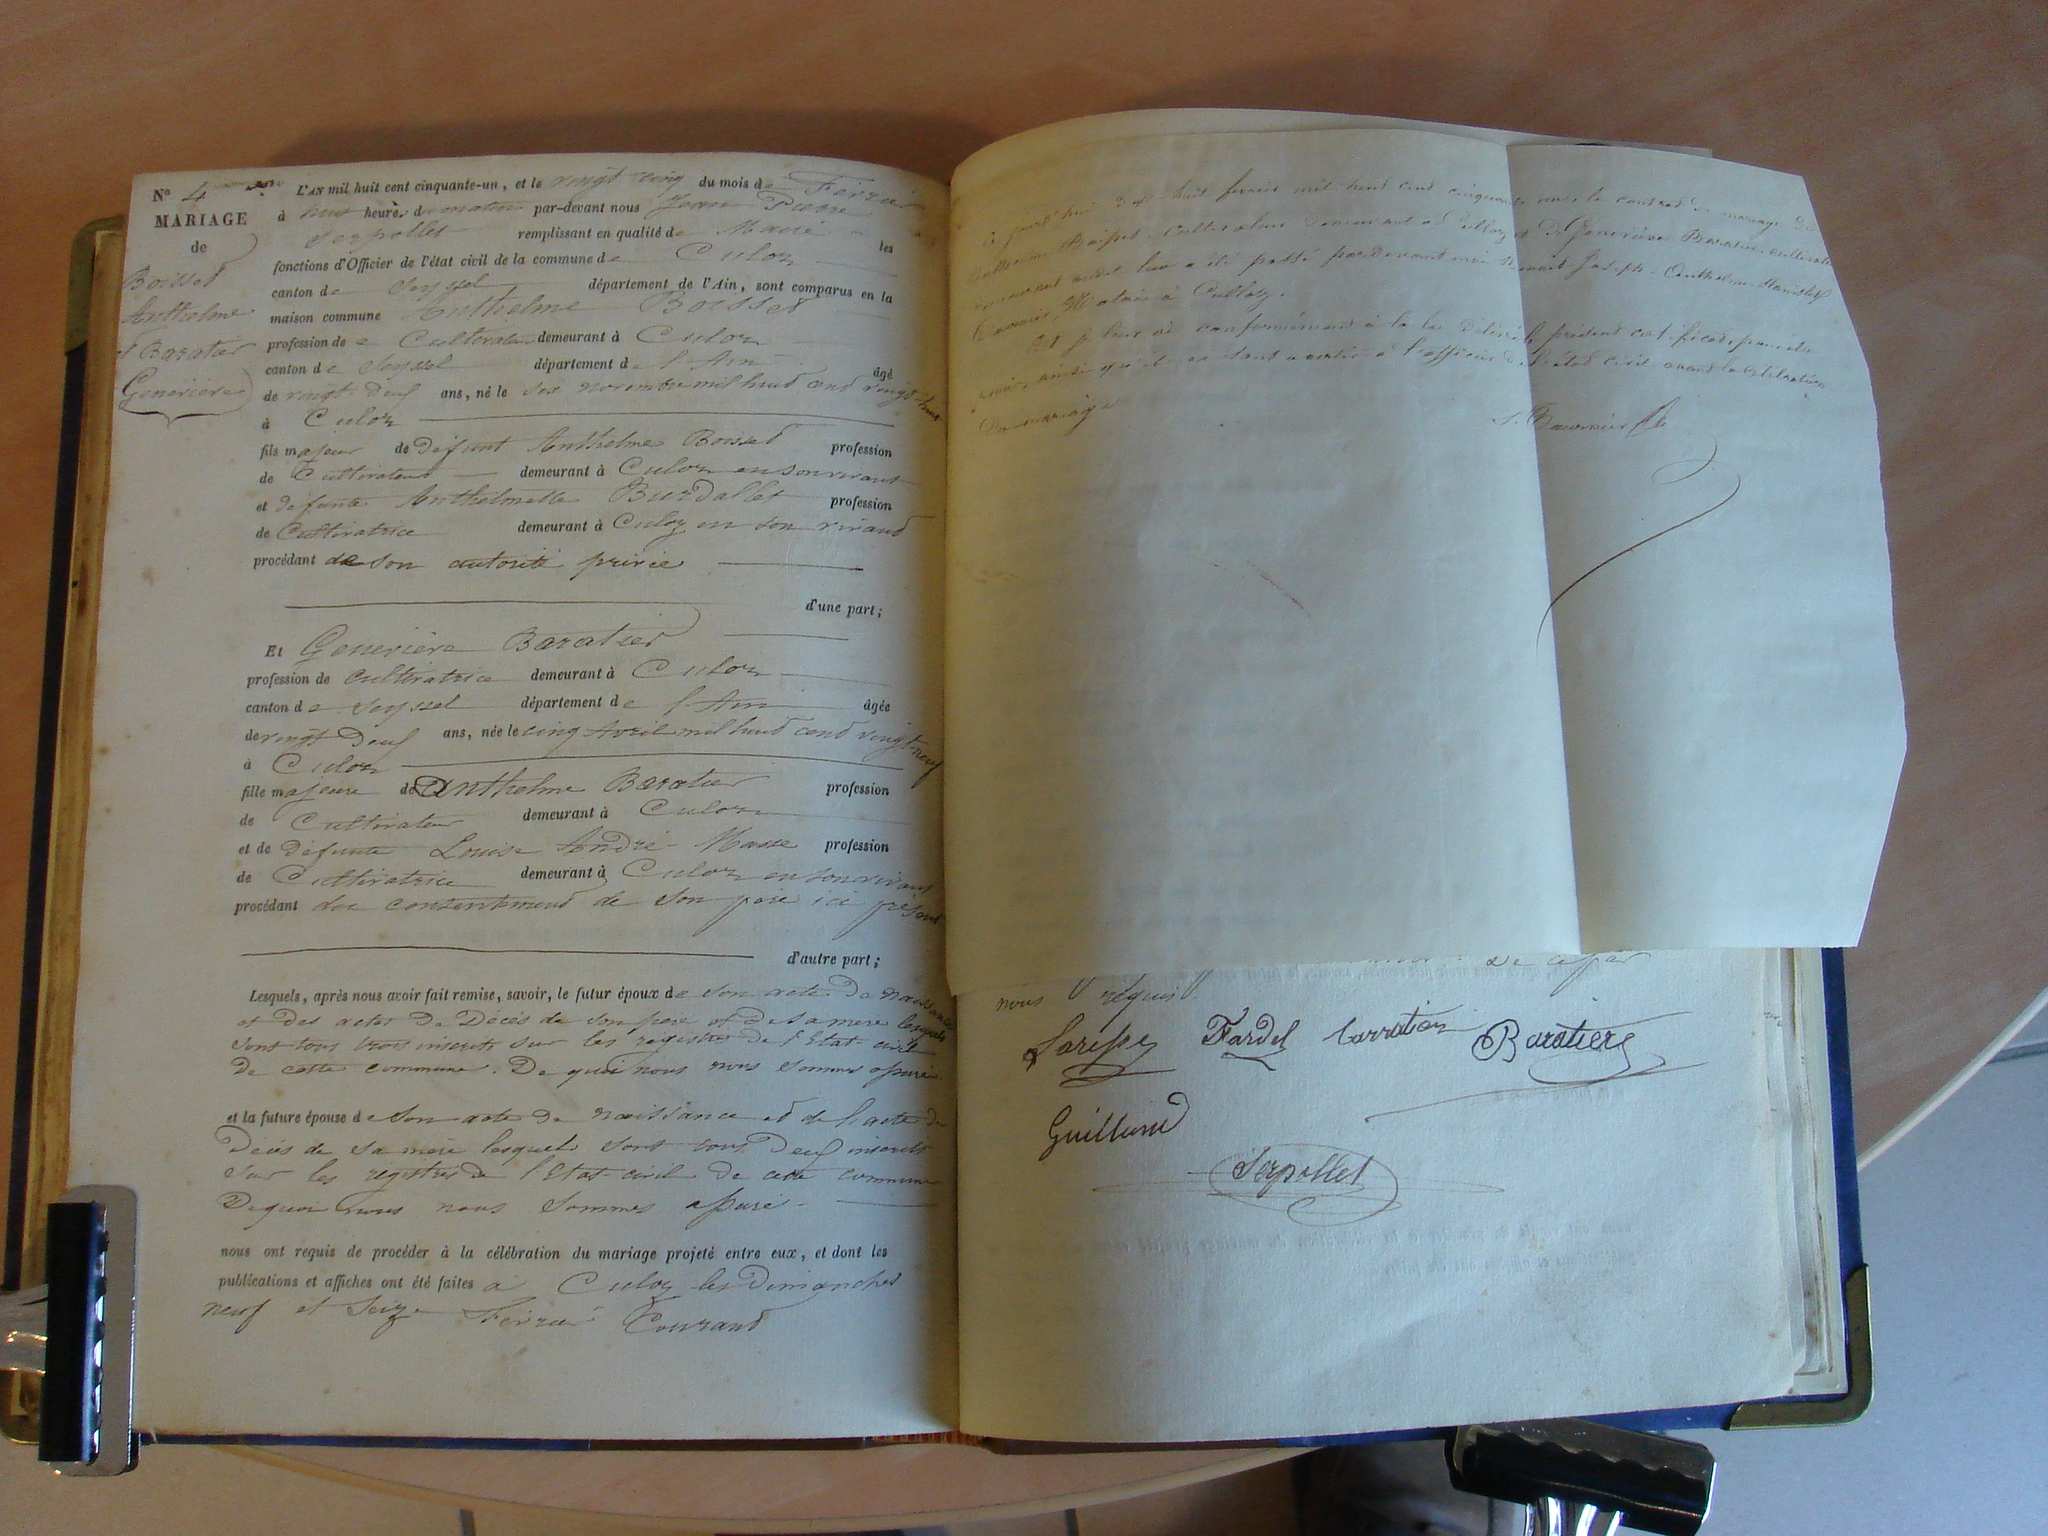 N° 4
MARIAGE
de
Boisset
Anthelme
et Baratier
Geneviève
L'AN mil huit cent cinquante-un, et le vingt cinq du mois de Février
à heures du matin par-devant nous Jean Pierre
Serpollet remplissant en qualité de Maire les
fonctions d'Officier de l'état civil de la commune de Culoz
canton de Seyssel département de l'Ain, sont comparus en la
maison commune Anthelme Boisset
profession de Cultivateur demeurant à Culoz
canton de Seyssel département de l'Ain âgé
de vingt deux ans, né le six novembre mil huit cent vingt-huit
à Culoz
fils majeur de défunt Anthelme Boisset profession
de Cultivateur demeurant à Culoz en son vivant
et défunte Anthelmette Burdallet profession
de Cultivatrice demeurant à Culoz en son vivant
procédant de son autorité privée
d'une part;
Et Geneviève Baratier
profession de Cultivatrice demeurant à Culoz
canton de Seyssel département de l'Ain âgée
de vingt Deux ans, née le cinq Avril mil huit cent vingt-neuf
à Culoz
fille majeure de Anthelme Baratier profession
de Cultivateur demeurant à Culoz
et de défunte Louise André-Masse profession
de Cultivatrice demeurant à Culoz en son vivant
procédant du consentement de son père ici présent
d'autre part;
Lesquels, après nous avoir fait remise, savoir, le futur époux de son acte de naissance
et des actes de Décès de son père et de sa mère lesquels
sont tous trois inscrits sur les registres de l'Etat civil
de cette commune. De quoi nous nous sommes assuré
et la future épouse de son acte de naissance et de l'acte de
Décès de sa mère lesquels sont tous Deux inscrits
sur les registres de l'Etat-civil de cette commune
De quoi nous nous sommes assuré.
nous ont requis de procéder à la célébration du mariage projeté entre eux, et dont les
publications et affiches ont été faites à Culoz les Dimanches
neuf et seize Février Courant
aujourd'hui dix huit février mil huit cent cinquante un le contrat de mariage de
Anthelme Boisset cultivateur demeurant à Culloz et de Geneviève Baratier cultivatrice
demeurant audit lieu a été passé pardevant moi Joseph-Anthelme-Stanislas
Notaire à Culloz.
Et je leur ai conformément à la loi délivré le présent certificat pour être
remis ainsi qu'ils en sont avertis à l'officier de l'état civil avant la célébration
Du mariage
nous requis.
Fardel Baratier
Guilland
Serpollet